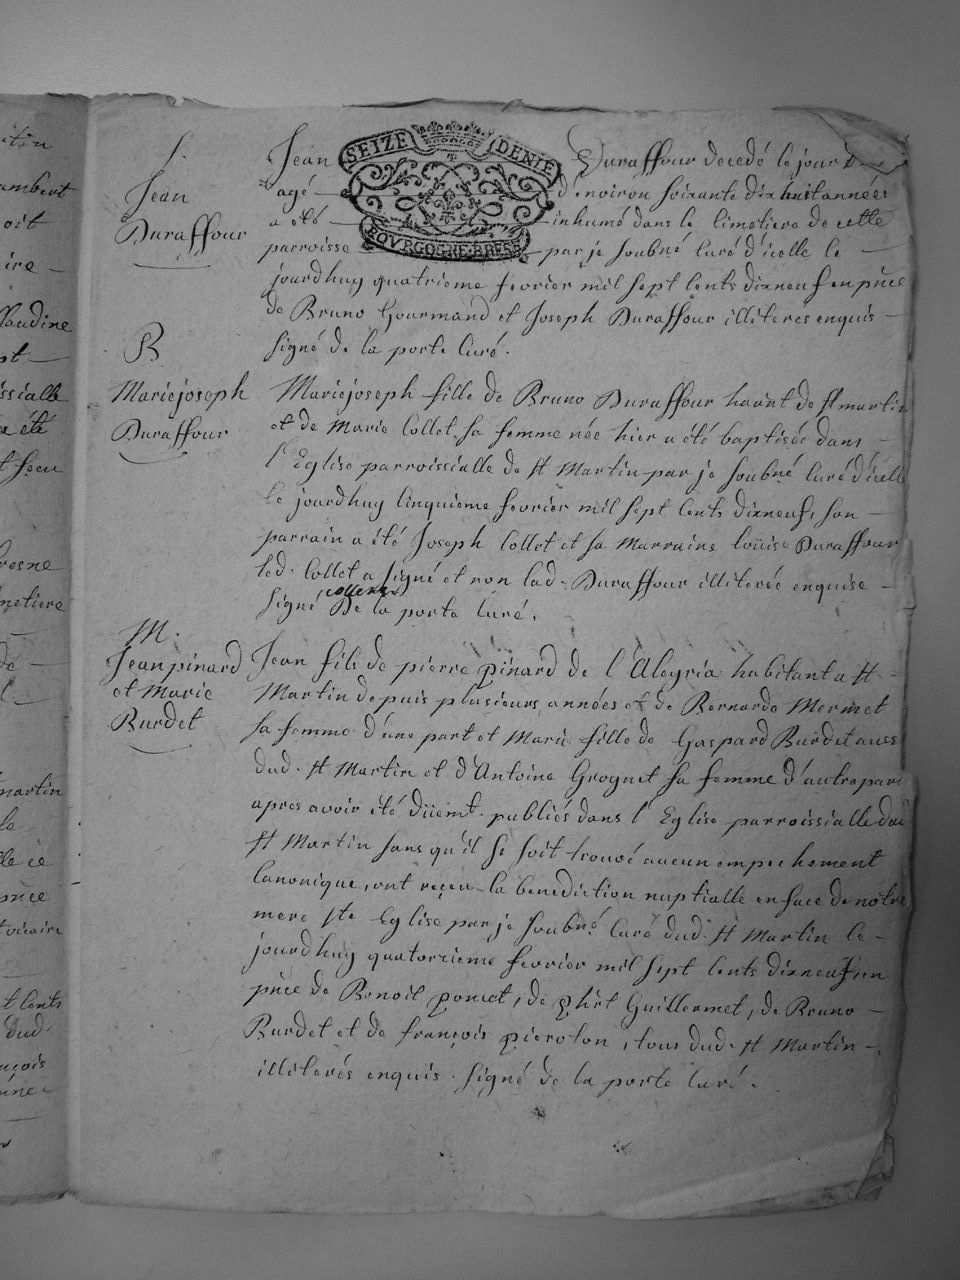 S.
Jean
Duraffour
SEIZE DENIE
BOVRGOGNE BRESSE
Jean Duraffour decedé le jour
agé d'environ soixante dix huit années
a été inhumé dans le Cimetiere de cette
parroisse par je soubné Curé d'icelle le
jourdhuy quatrieme fevrier mil sept cents dixneuf en pñce
de Bruno Gourmand et Joseph Duraffour illiterés enquis
signé De la porte Curé.
B
Mariejoseph
Duraffour
Mariejoseph fille de Bruno Duraffour habitant de St martin
et de Marie Collet sa femme née hier a été baptisée dans
l'Eglise parroissialle de St Martin par je soubné Curé d'icelle
le jourdhuy Cinquieme fevrier mil sept cents dixneuf, son
parrain a été Joseph Collet et sa Marraine Loüise Duraffour
led. Collet a signé et non lad. Duraffour illiterée enquise
signé Collet De la porte Curé.
M.
Jean pinard
et Marie
Burdet
Jean fils de pierre pinard de l'Aleyria habitant a St
Martin depuis plusieurs années et de Bernarde Mermet
sa femme d'une part et Marie fille de Gaspard Burdet aussi
dud. St Martin et d'Antoine Grognet sa femme d'autre part
apres avoir été düemt. publiés dans l'Eglise parroissialle dud
St Martin sans qu'il se soit trouvé aucun empechement
Canonique, ont reçeu la benediction nuptialle en face de nôtre
mere Ste Eglise par je soubné Curé dud. St Martin le
jourdhuy quatorzieme fevrier mil sept cents dixneuf en
pñce de Benoit poncet, de phirt Guillermet, de Bruno
Burdet et de françois pieroton, tous dud. St Martin
illiterés enquis. signé De la porte Curé.